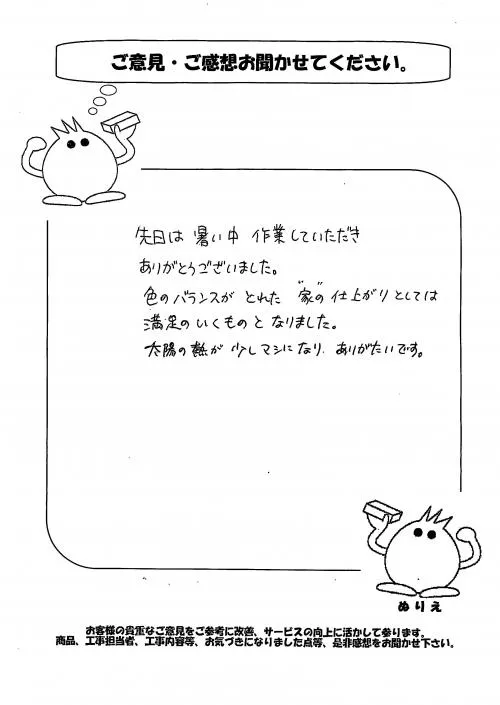 ご意見・ご感想お聞かせてください。
先日は 暑い中 作業していただき
ありがとうございました。
色のバランスが とれた "家"の 仕上がりとしては
満足の いくものと なりました。
太陽の 熱が 少しマシになり ありがたいです。
ぬりえ
お客様の貴重なご意見をご参考に改善、サービスの向上に活かして参ります。
商品、工事担当者、工事内容等、お気づきになりました点等、是非感想をお聞かせ下さい。